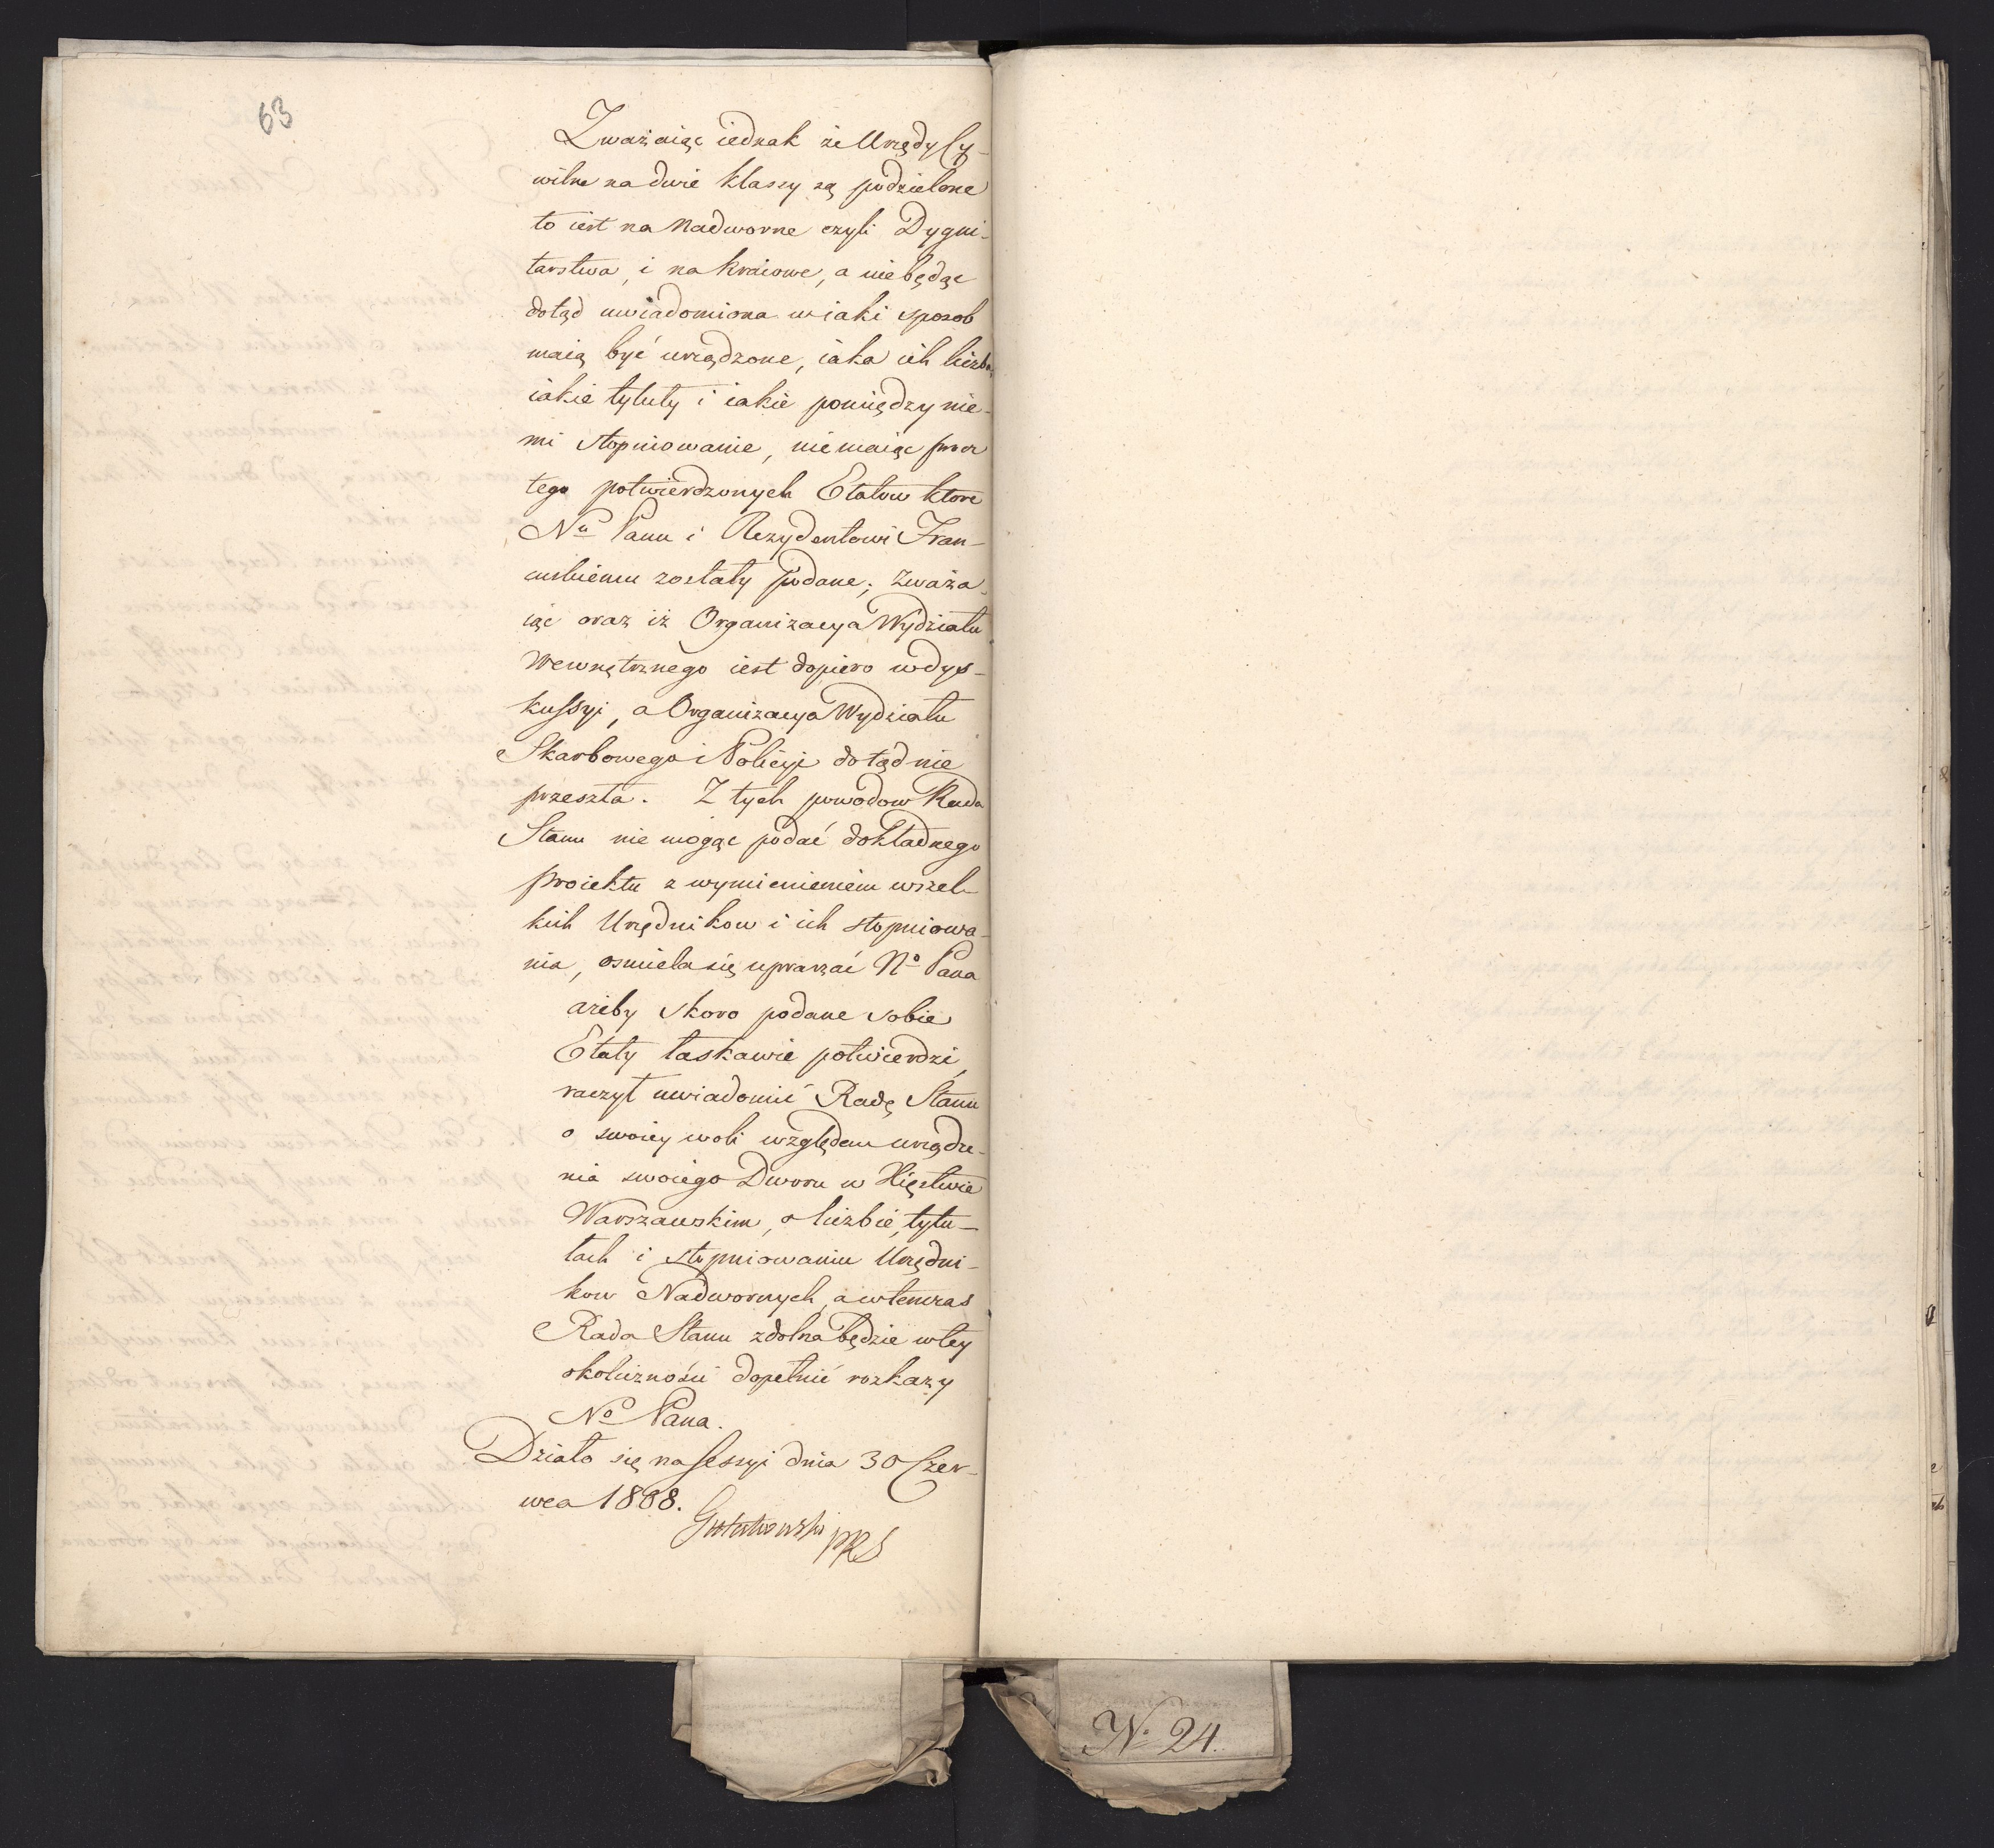 63
Zważaiąc iednak że Urzędy Cy-
wilne na dwie klassy są podzielone
to iest na Nadworne czyli Dygni-
tarstwa, i na kraiowe, a niebędąc
dotąd uwiadomiona w iaki sposob
maią być urządzone, iaka ich liczba,
iakie tytuły i iakie pomiędzy nie-
mi stopniowanie, niemaiąc procz
tego potwierdzonych Etatow ktore
Nu Panu i Rezydentowi Fran-
cuskiemu zostały podane; zważa-
iąc oraz iż Organizacya Wydziału
Wewnętrznego iest dopiero w dys-
kussyi, a Organizacya Wydziału
Skarbowego i Policyi dotąd nie
przeszła. Z tych powodow Rada
Stanu nie mogąc podać dokładnego
proiektu z wymienieniem wszel-
kich Urzędnikow i ich stopniowa-
nia, osmiela się upraszać No Pana
ażeby skoro podane sobie
Etaty łaskawie potwierdzi,
raczył uwiadomić Radę Stanu
o swoiey woli względem urządze-
nia swoiego Dworu w Xięstwie
Warszawskim, o liczbie, tytu-
łach i stopniowaniu Urzędni-
kow Nadwornych, a wtenczas
Rada Stanu zdolna będzie w tey
okoliczności dopełnić rozkazy
No Pana.
Działo się na Sessyi dnia 30 Czer-
wca 1808.
Gutakowski PRS
No 24.